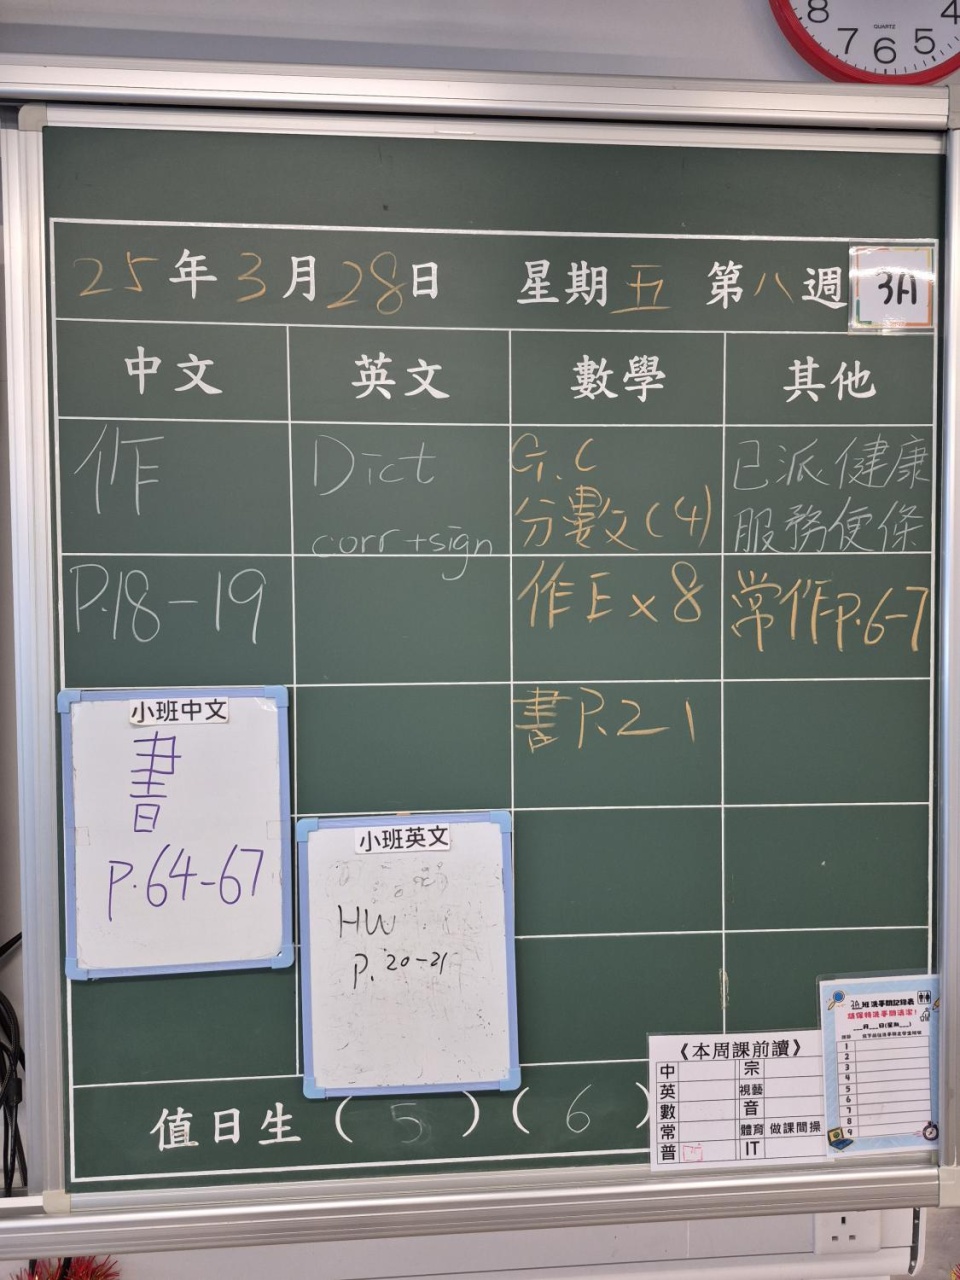 8 7 6 5 4
QUARTZ
25年3月28日 星期五 第八週 3A
中文 英文 數學 其他
作
P.18-19
Dict
corr+sign
G.C
分數文(4)
作E x 8
書P.21
已派健康
服務便條
常作P.6-7
小班中文
書
P.64-67
小班英文
HW
P. 20-21
值日生 (5) (6)
《本周課前讀》
中 宗
英 視藝
數 音
常 體育 做課間操
普 IT
1
2
3
4
5
6
7
8
9